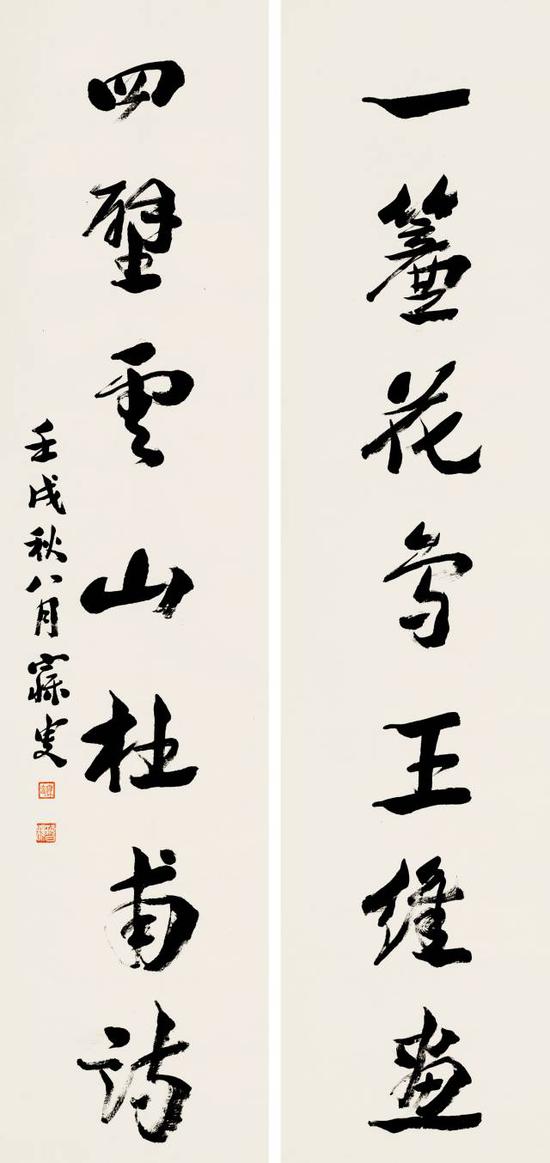 一簾花鳥王維畫
四壁雲山杜甫詩
壬戌秋八月寐叟